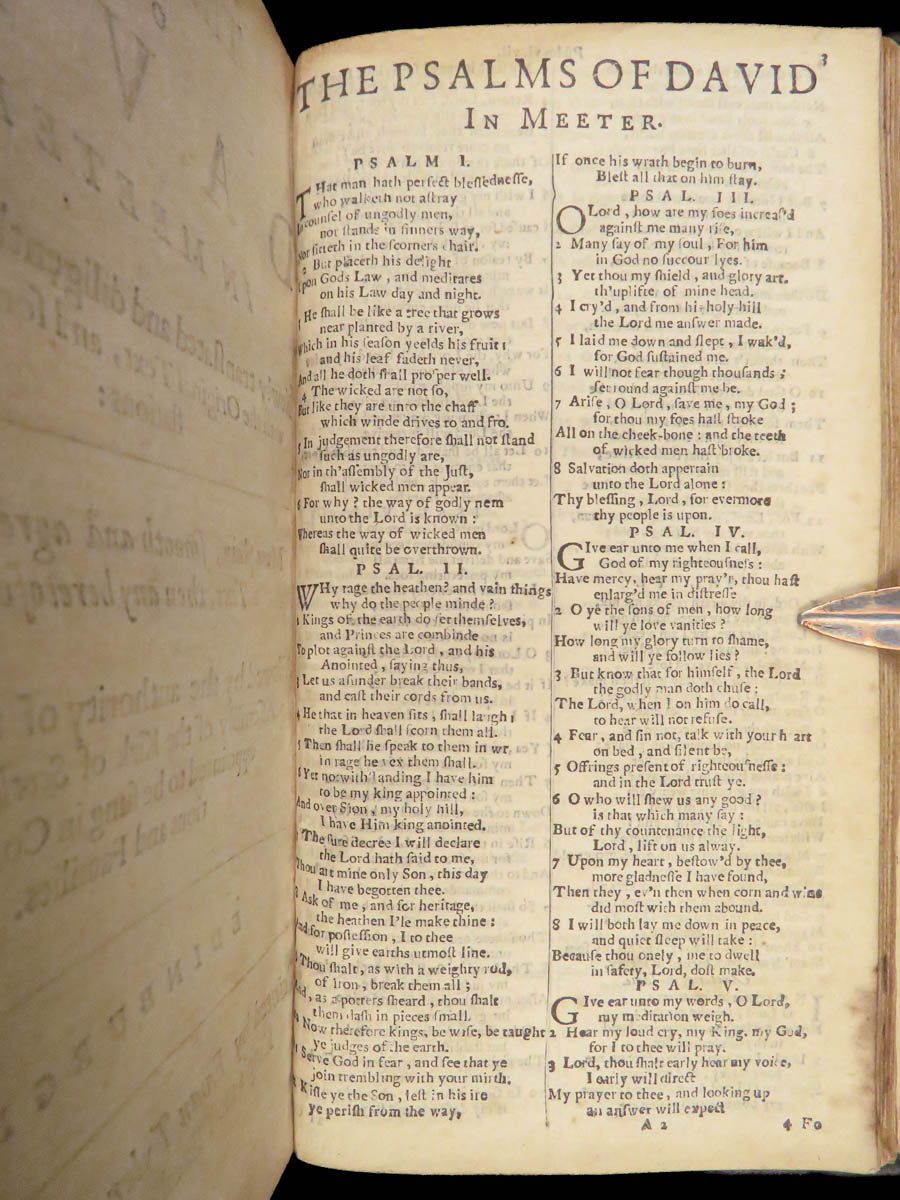 THE PSALMS OF DAVID
IN MEETER.
PSALM I.
THat man hath perfect blessednesse,
who walketh not astray
In counsel of ungodly men,
nor stands in sinners way,
Nor sitteth in the scorners chair.
2 But placeth his delight
Upon Gods Law, and meditates
on his Law day and night.
He shall be like a tree that grows
near planted by a river,
Which in his season yeelds his fruit:
and his leaf fadeth never,
And all he doth shall prosper well.
4 The wicked are not so,
But like they are unto the chaff
which winde drives to and fro.
5 In judgement therefore shall not stand
such as ungodly are,
Nor in th'assembly of the Just,
shall wicked men appear.
6 For why? the way of godly nem
unto the Lord is known:
Whereas the way of wicked men
shall quite be overthrown.
PSAL. II.
WHy rage the heathen? and vain things
why do the people minde?
Kings of the earth do set themselves,
and Princes are combinde
To plot against the Lord, and his
Anointed, saying thus,
3 Let us asunder break their bands,
and cast their cords from us.
4 He that in heaven sits, shall laugh:
the Lord shall scorn them all.
5 Then shall he speak to them in wr
in rage he vex them shall.
6 Yet notwithstanding I have him
to be my king appointed:
And over Sion, my holy hill,
I have Him king anointed.
The sure decree I will declare
the Lord hath said to me,
Thou art mine only Son, this day
I have begotten thee.
8 Ask of me, and for heritage,
the heathen I'le make thine:
And for possession, I to thee
will give earths utmost line.
Thou shalt, as with a weighty rod,
of Iron, break them all;
And, as a potters sheard, thou shalt
them dash in pieces small.
Now therefore kings, be wise, be taught
ye judges of the earth.
Serve God in fear, and see that ye
join trembling with your mirth.
Kisse ye the Son, lest in his ire
ye perish from the way,
If once his wrath begin to burn,
Blest all that on him stay.
PSAL. III.
O Lord, how are my foes increas'd
against me many rise,
2 Many say of my soul, For him
in God no succour lyes.
3 Yet thou my shield, and glory art.
th'uplifte. of mine head.
4 I cry'd, and from his holy hill
the Lord me answer made.
5 I laid me down and slept, I wak'd,
for God sustained me.
6 I will not fear though thousands;
set round against me be.
7 Arise, O Lord, save me, my God;
for thou my foes hast stroke
All on the cheek-bone: and the teeth
of wicked men hast broke.
8 Salvation doth appertain
unto the Lord alone:
Thy blessing, Lord, for evermore
thy people is upon.
PSAL. IV.
GIve ear unto me when I call,
God of my righteousness:
Have mercy, hear my pray'r, thou hast
enlarg'd me in distresse
2 O ye the sons of men, how long
will ye love vanities?
How long my glory turn to shame,
and will ye follow lies?
3 But know that for himself, the Lord
the godly man doth chuse:
The Lord, when I on him do call,
to hear will not refuse.
4 Fear, and sin not, talk with your h art
on bed, and silent be,
5 Offrings present of righteousnesse:
and in the Lord trust ye.
6 O who will shew us any good?
is that which many say:
But of thy countenance the light,
Lord, lift on us alway.
7 Upon my heart, bestow'd by thee,
more gladnesse I have found,
Then they, ev'n then when corn and wine
did most with them abound.
8 I will both lay me down in peace,
and quiet sleep will take:
Because thou onely, me to dwell
in safety, Lord, dost make.
PSAL. V.
GIve ear unto my words, O Lord,
my meditation weigh.
2 Hear my loud cry, my King, my God,
for I to thee will pray.
3 Lord, thou shalt early hear my voice,
I early will direct
My prayer to thee, and looking up
an answer will expect
A 2
4 Fo